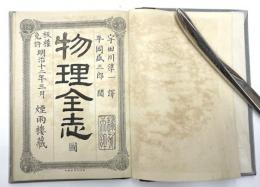 宇田川準一 譯
平岡盛三郎 閲
物理全志
版權免許 明治十二年三月 煙雨樓藏